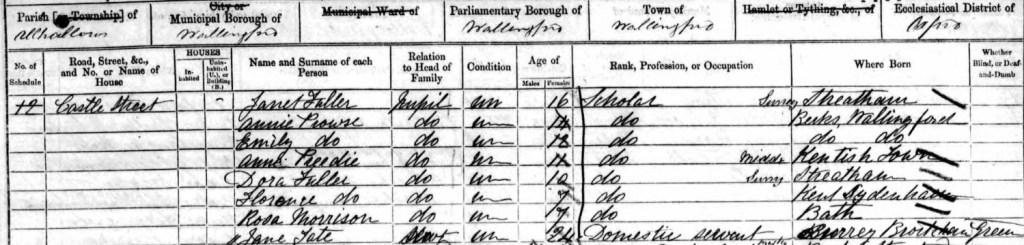 Parish [or Township] of
City or
Municipal Borough of
Municipal Ward of
Parliamentary Borough of
Town of
Hamlet or Tything, &c., of
Ecclesiastical District of
Allhallows
Wallingford
Wallingford
Wallingford
No. of Schedule
Road, Street, &c., and No. or Name of House
HOUSES
Inhabited
Uninhabited (U.), or Building (B.)
Name and Surname of each Person
Relation to Head of Family
Condition
Age of
Males
Females
Rank, Profession, or Occupation
Where Born
Whether Blind, or Deaf-and-Dumb
12 Castle Street Janet Fuller Pupil un 16 Scholar Surrey Streatham
Annie Prowse do un do Berks, Wallingford
Emily do do un do do do
Anne Reedie do un 11 do Middx Kentish Town
Dora Fuller do un 10 do Surrey Streatham
Florence do do un 7 do Kent Sydenham
Rosa Morrison do un 17 do Bath
Jane Tate un 24 Domestic servant Surrey Green